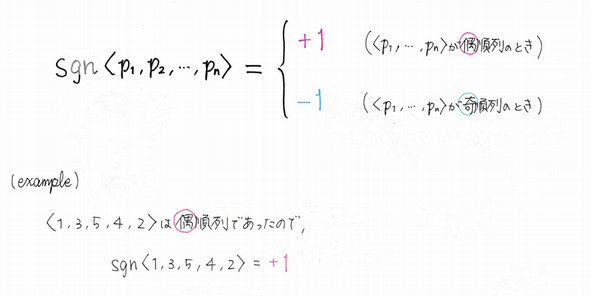 sgn⟨p₁, p₂, ⋯, pₙ⟩ = { +1 (⟨p₁, ⋯, pₙ⟩が偶順列のとき)
−1 (⟨p₁, ⋯, pₙ⟩が奇順列のとき)
(example)
⟨1, 3, 5, 4, 2⟩は偶順列であったので,
sgn⟨1, 3, 5, 4, 2⟩ = +1